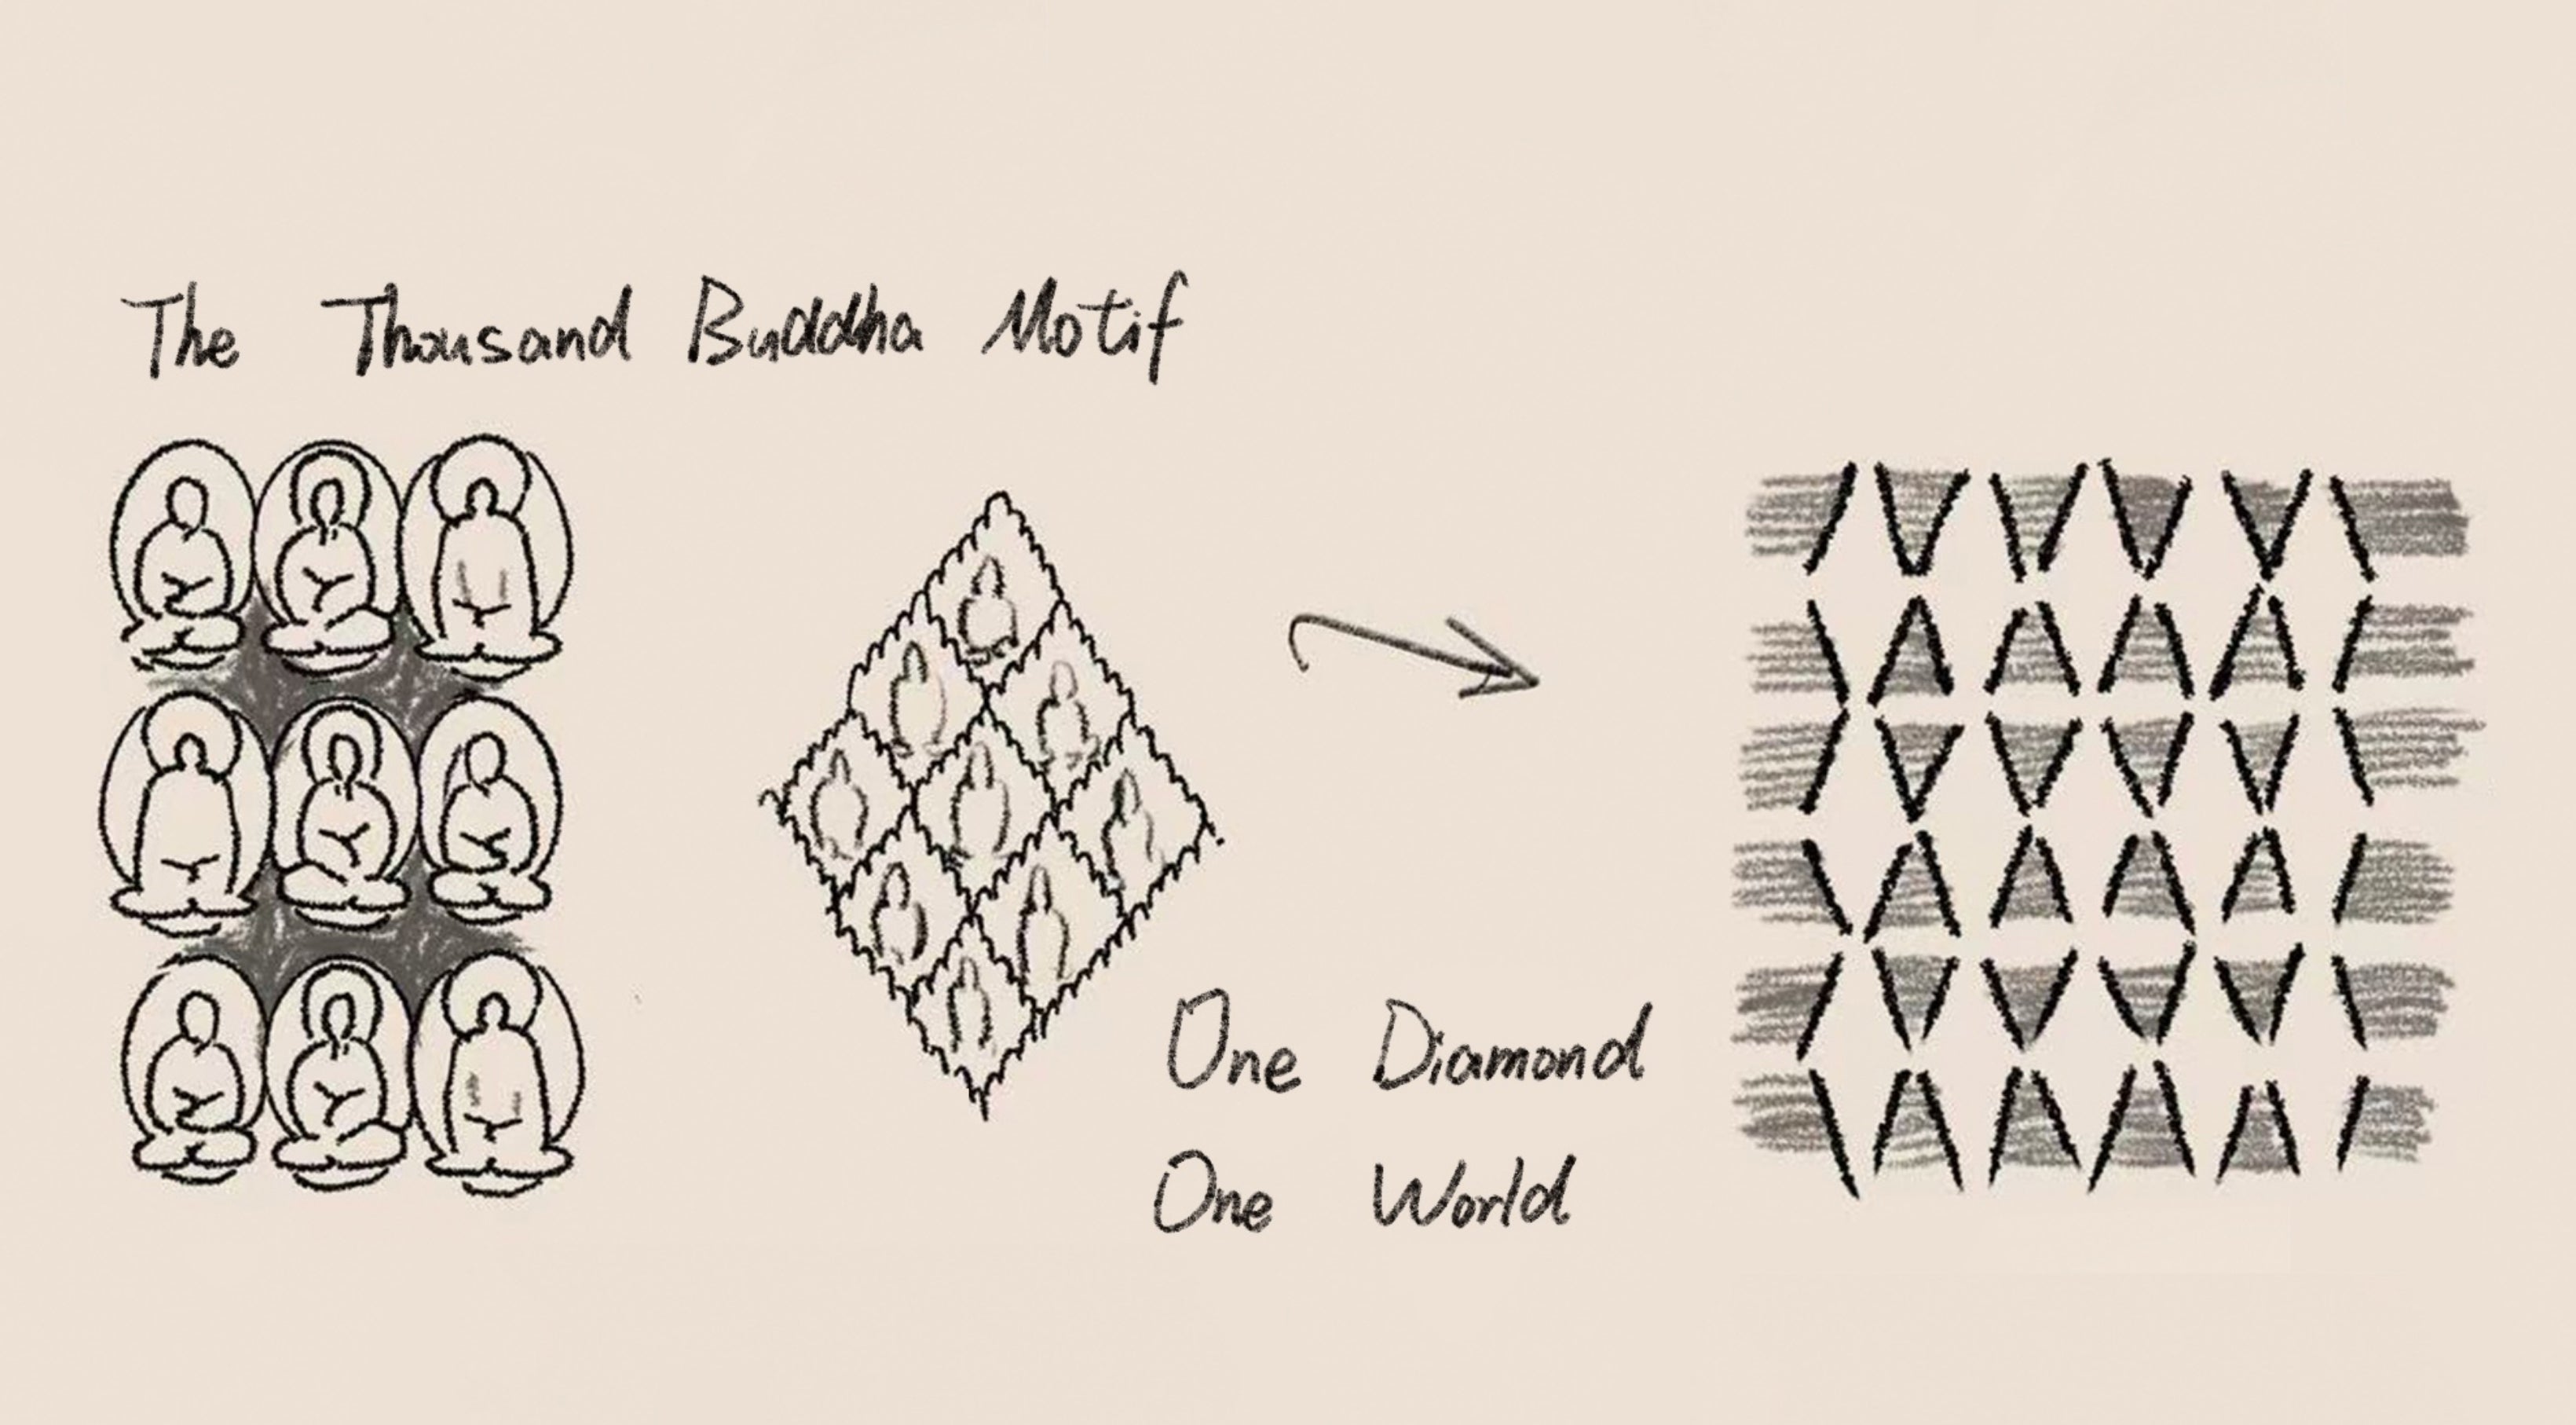 The Thousand Buddha Motif
One Diamond
One World